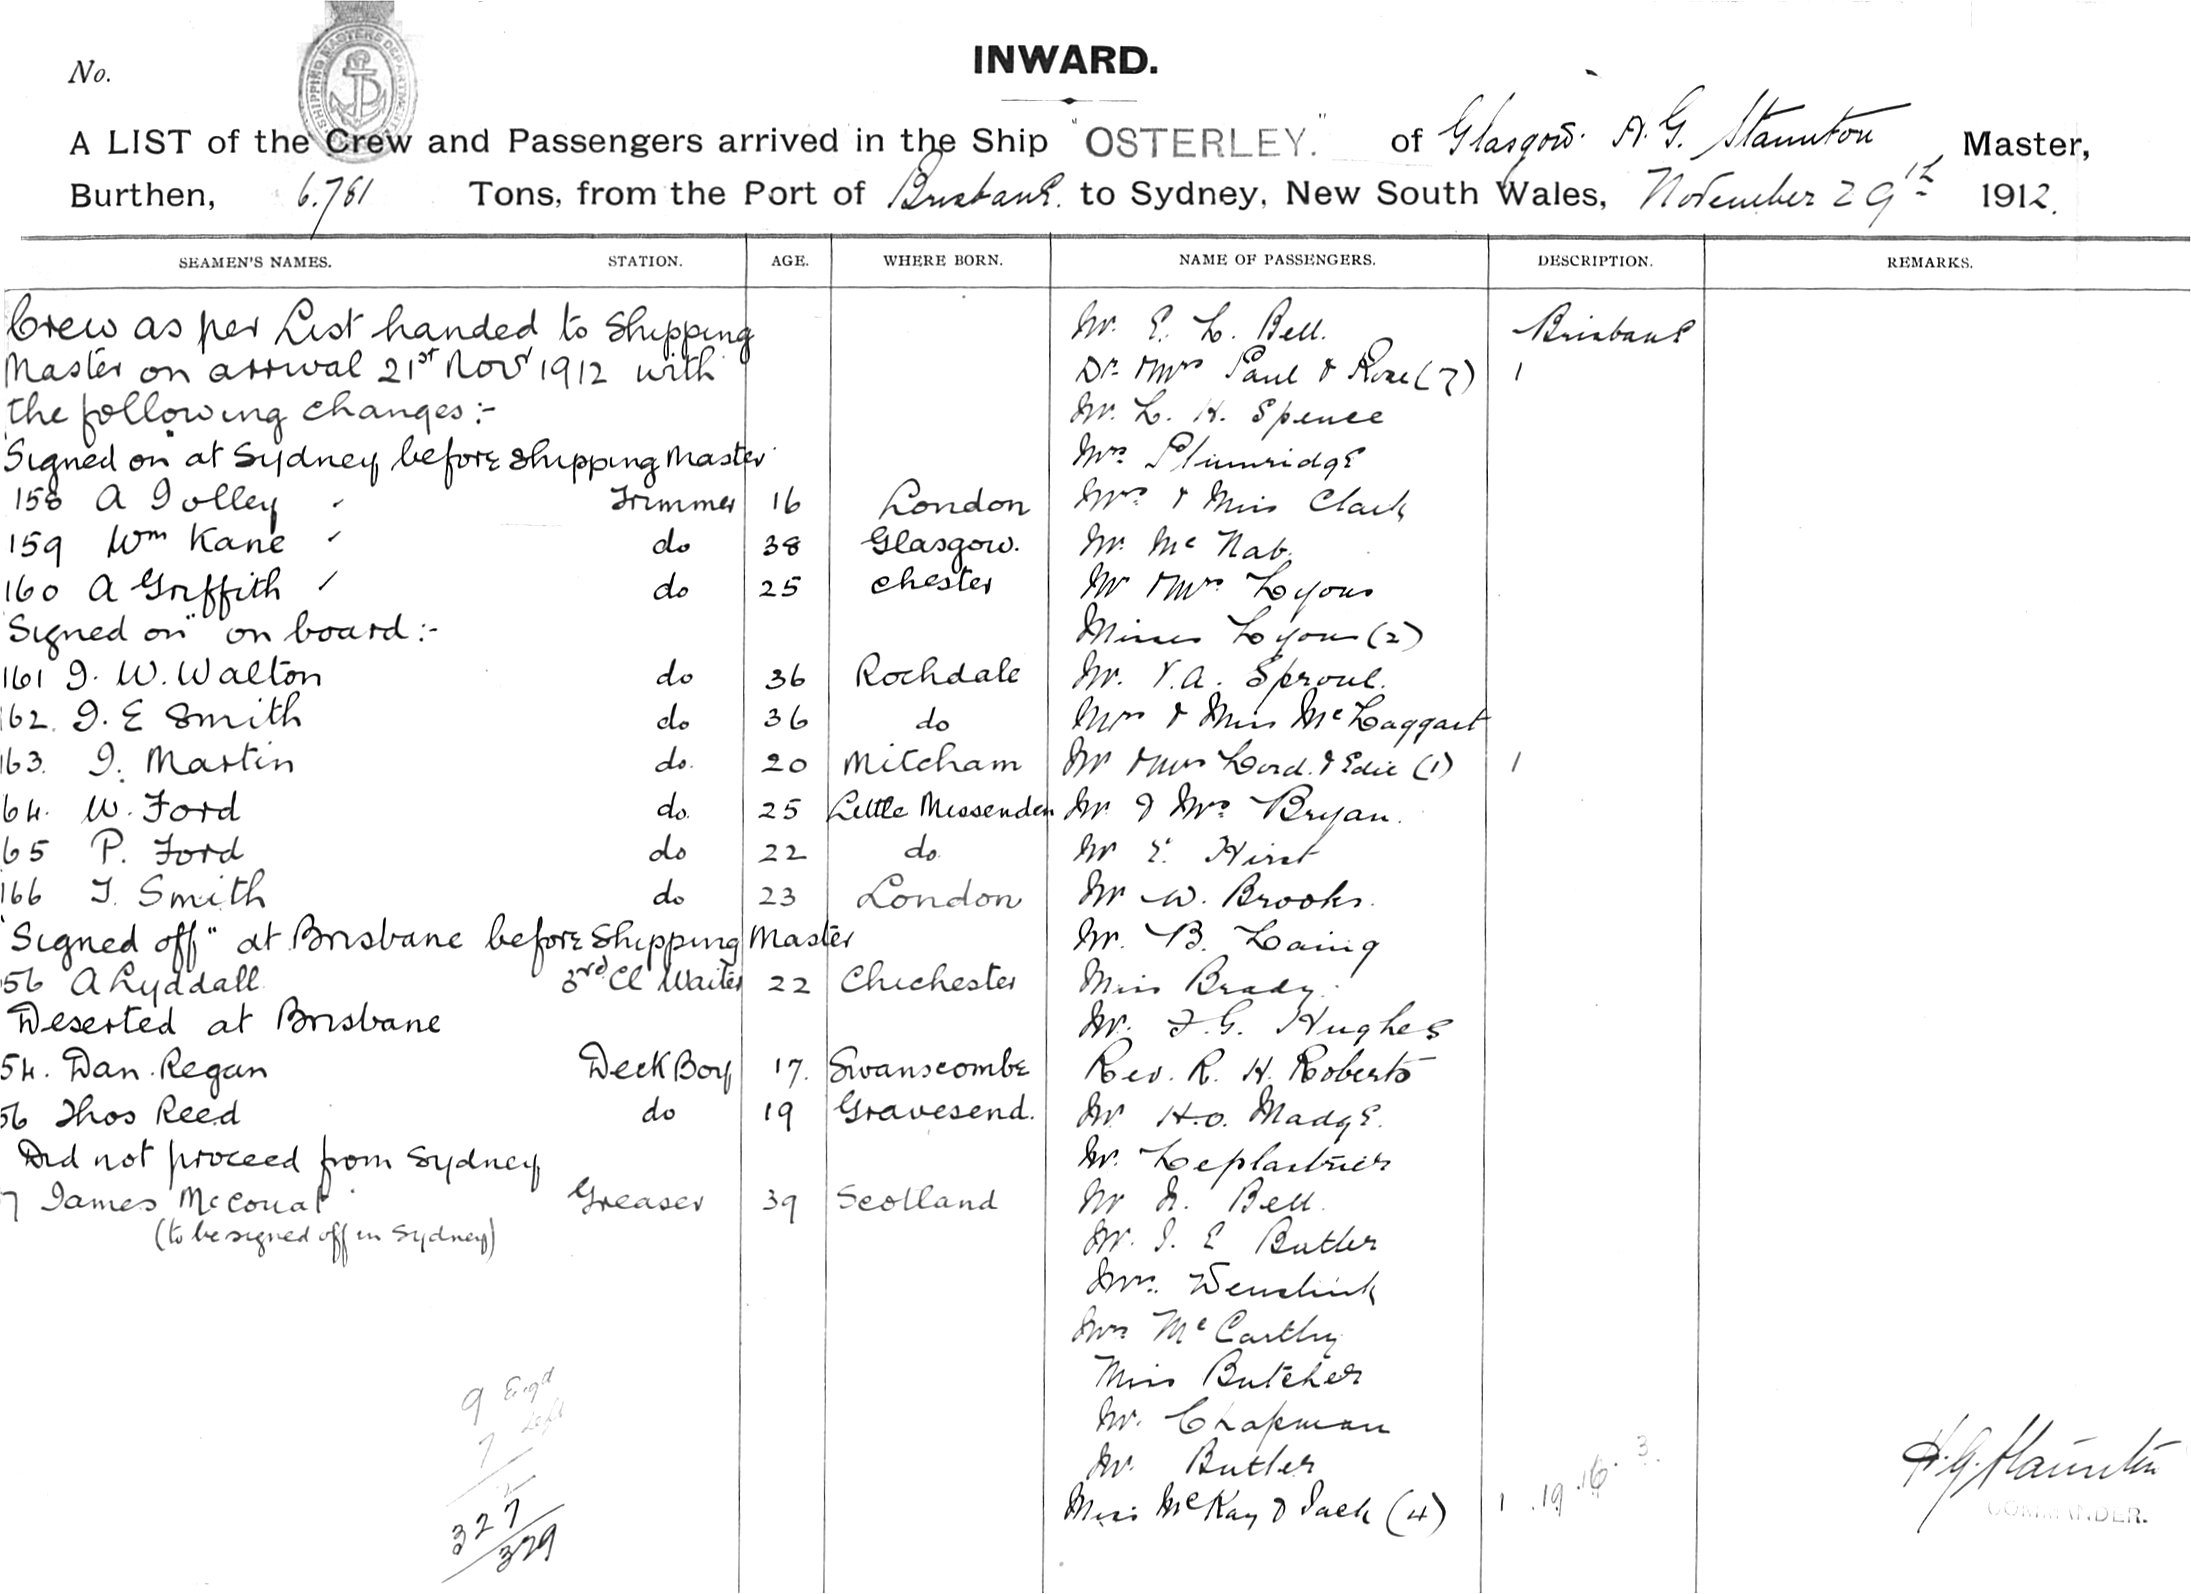 No.
SHIPPING MASTERS DEPARTMENT
INWARD.
A LIST of the Crew and Passengers arrived in the Ship "OSTERLEY." of Glasgow. A. G. Staunton Master,
Burthen, 6.781 Tons, from the Port of Brisbane. to Sydney, New South Wales, November 29th 1912.
SEAMEN'S NAMES. STATION. AGE. WHERE BORN. NAME OF PASSENGERS. DESCRIPTION. REMARKS.
Crew as per List handed to Shipping Mr. E. L. Bell. Brisbane
Master on arrival 21st Novr 1912 with Dr. & Mrs Paul & Rose (7) 1
the following changes:- Mr. L. H. Spence
"Signed on" at Sydney before Shipping Master Mrs Plumridge
158 A Jolley Trimmer 16 London Mrs & Miss Clark
159 Wm Kane do 38 Glasgow. Mr. McNab.
160 A Griffith do 25 Chester Mr & Mrs Lyons
"Signed on" on board:- Misses Lyons (2)
161 J. W. Walton do 36 Rochdale Mr. V. A. Sproul.
162. J. E Smith do 36 do Mrs & Miss McLaggart
163. J. Martin do. 20 Mitcham Mr & Mrs Lord. & Edie (1) 1
64. W. Ford do. 25 Little Missenden Mr & Mrs Bryan.
65 P. Ford do 22 do. Mr E. Hirst
166 T. Smith do 23 London Mr W. Brooks.
"Signed off" at Brisbane before Shipping Master Mr. B. Laing
56 A Lyddall 3rd Cl Waiter 22 Chichester Miss Brady.
Deserted at Brisbane Mr. F. G. Hughes
54. Dan. Regan Deck Boy 17. Swanscombe Rev. R. H. Roberts
56 Thos Reed do 19 Gravesend. Mr H. O. Madge.
Did not proceed from Sydney Mr. Leplastrier
7 James McCouat Greaser 39 Scotland Mr A. Bell.
(to be signed off in Sydney) Mr. J. E Butler
Mrs.
Mrs McCarthy
Miss Butcher
9 Engd Mr. Chapman
7 Left Mr. Butler
2 Miss McKay & Jack (4) 1 .19 .16. 3.
327
329
H. G. Staunton
COMMANDER.